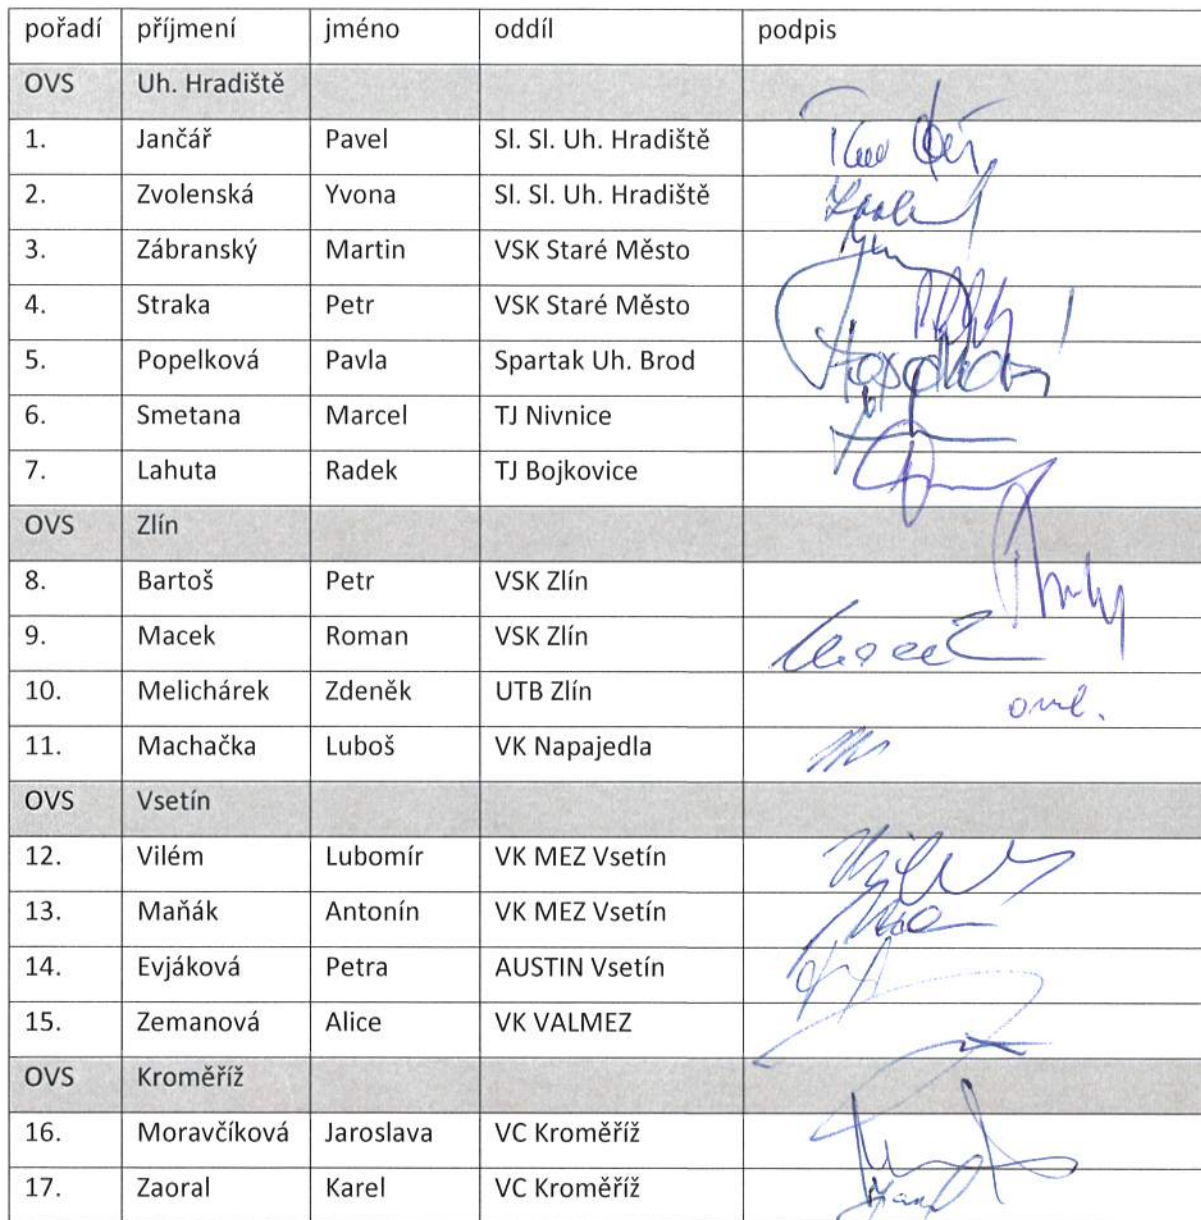 pořadí příjmení jméno oddíl podpis
OVS Uh. Hradiště
1. Jančář Pavel Sl. Sl. Uh. Hradiště
2. Zvolenská Yvona Sl. Sl. Uh. Hradiště
3. Zábranský Martin VSK Staré Město
4. Straka Petr VSK Staré Město
5. Popelková Pavla Spartak Uh. Brod
6. Smetana Marcel TJ Nivnice
7. Lahuta Radek TJ Bojkovice
OVS Zlín
8. Bartoš Petr VSK Zlín
9. Macek Roman VSK Zlín
10. Melichárek Zdeněk UTB Zlín
11. Machačka Luboš VK Napajedla
OVS Vsetín
12. Vilém Lubomír VK MEZ Vsetín
13. Maňák Antonín VK MEZ Vsetín
14. Evjáková Petra AUSTIN Vsetín
15. Zemanová Alice VK VALMEZ
OVS Kroměříž
16. Moravčíková Jaroslava VC Kroměříž
17. Zaoral Karel VC Kroměříž